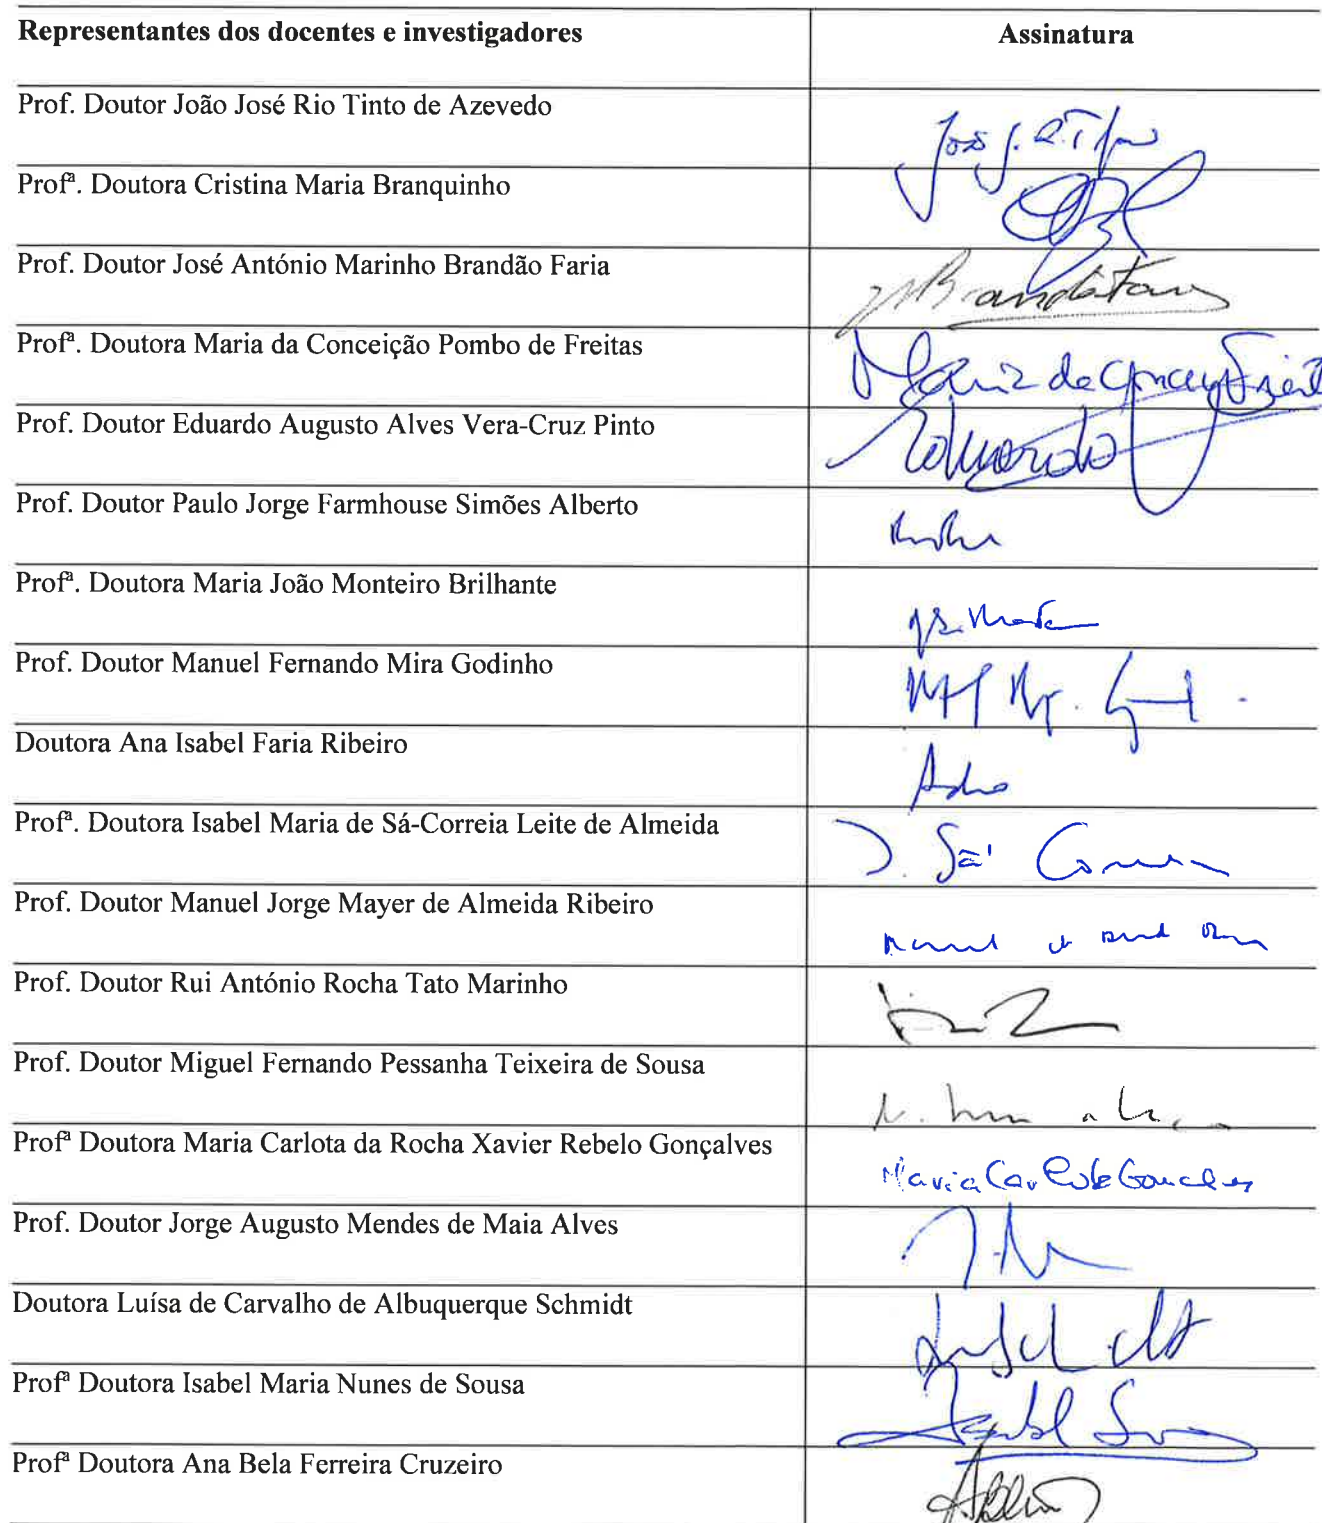 Representantes dos docentes e investigadores
Assinatura
Prof. Doutor João José Rio Tinto de Azevedo
Profª. Doutora Cristina Maria Branquinho
Prof. Doutor José António Marinho Brandão Faria
Profª. Doutora Maria da Conceição Pombo de Freitas
Maria da
Prof. Doutor Eduardo Augusto Alves Vera-Cruz Pinto
Eduardo
Prof. Doutor Paulo Jorge Farmhouse Simões Alberto
Profª. Doutora Maria João Monteiro Brilhante
Prof. Doutor Manuel Fernando Mira Godinho
Doutora Ana Isabel Faria Ribeiro
Profª. Doutora Isabel Maria de Sá-Correia Leite de Almeida
Prof. Doutor Manuel Jorge Mayer de Almeida Ribeiro
Prof. Doutor Rui António Rocha Tato Marinho
Prof. Doutor Miguel Fernando Pessanha Teixeira de Sousa
Profª Doutora Maria Carlota da Rocha Xavier Rebelo Gonçalves
Maria Carlota Gonçalves
Prof. Doutor Jorge Augusto Mendes de Maia Alves
Doutora Luísa de Carvalho de Albuquerque Schmidt
Profª Doutora Isabel Maria Nunes de Sousa
Profª Doutora Ana Bela Ferreira Cruzeiro